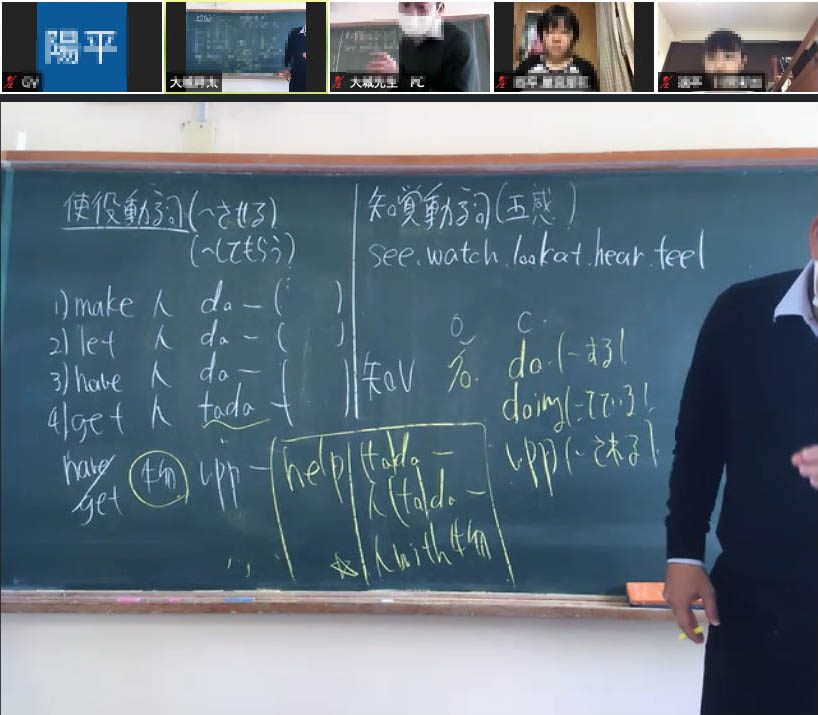 陽平
大城
大城先生 PC
使役動詞(〜させる)
(〜してもらう)
1) make 人 do 〜 ( )
2) let 人 do 〜 ( )
3) have 人 do 〜 ( )
4) get 人 to do 〜 ( )
have/get 物 v.pp 〜
help (to) do 〜
人 (to) do 〜
☆ 人 with 物
知覚動詞(五感)
see.watch.look at.hear.feel
O C
知V % do (〜する)
doing (〜している)
v.pp (〜される)